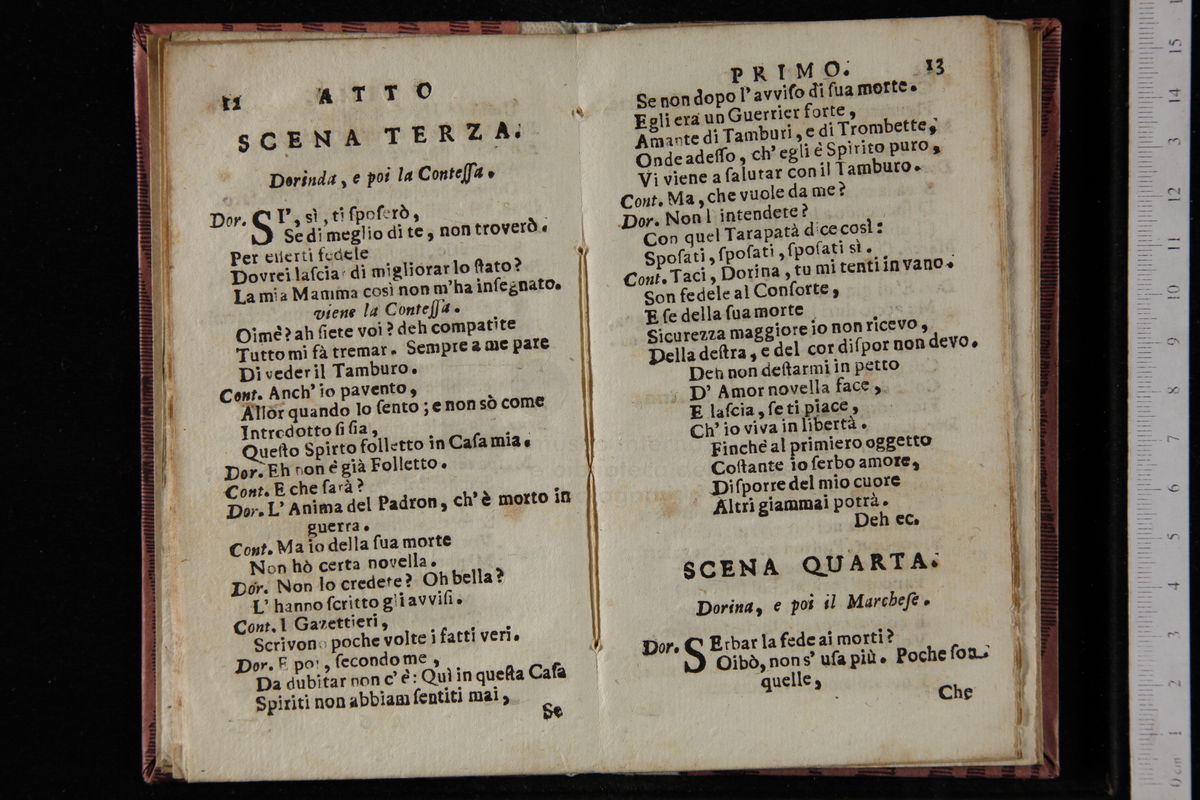 12 ATTO
SCENA TERZA.
Dorinda, e poi la Contessa.
Dor. SI', sì, ti sposerò,
Se di meglio di te, non troverò.
Per esserti fedele
Dovrei lasciar di migliorar lo stato?
La mia Mamma così non m'ha insegnato.
viene la Contessa.
Oimè? ah siete voi? deh compatite
Tutto mi fà tremar. Sempre a me pare
Di veder il Tamburo.
Cont. Anch' io pavento,
Allor quando lo sento; e non sò come
Introdotto si sia,
Questo Spirto folletto in Casa mia.
Dor. Eh non è già Folletto.
Cont. E che sarà?
Dor. L' Anima del Padron, ch' è morto in
guerra.
Cont. Ma io della sua morte
Non hò certa novella.
Dor. Non lo credete? Oh bella?
L' hanno scritto gli avvisi.
Cont. I Gazettieri,
Scrivono poche volte i fatti veri.
Dor. E poi, secondo me,
Da dubitar non c' è: Quì in questa Casa
Spiriti non abbiam sentiti mai,
Se
PRIMO. 13
Se non dopo l' avviso di sua morte.
Egli era un Guerrier forte,
Amante di Tamburi, e di Trombette;
Onde adesso, ch' egli è Spirito puro,
Vi viene a salutar con il Tamburo.
Cont. Ma, che vuole da me?
Dor. Non l intendete?
Con quel Tarapatà dice così:
Sposati, sposati, sposati sì.
Cont. Taci, Dorina, tu mi tenti in vano.
Son fedele al Consorte,
E se della sua morte
Sicurezza maggiore io non ricevo,
Della destra, e del cor dispor non devo.
Deh non destarmi in petto
D' Amor novella face,
E lascia, se ti piace,
Ch' io viva in libertà.
Finchè al primiero oggetto
Costante io serbo amore,
Disporre del mio cuore
Altri giammai potrà.
Deh ec.
SCENA QUARTA.
Dorina, e poi il Marchese.
Dor. SErbar la fede ai morti?
Oibò, non s' usa più. Poche son
quelle,
Che